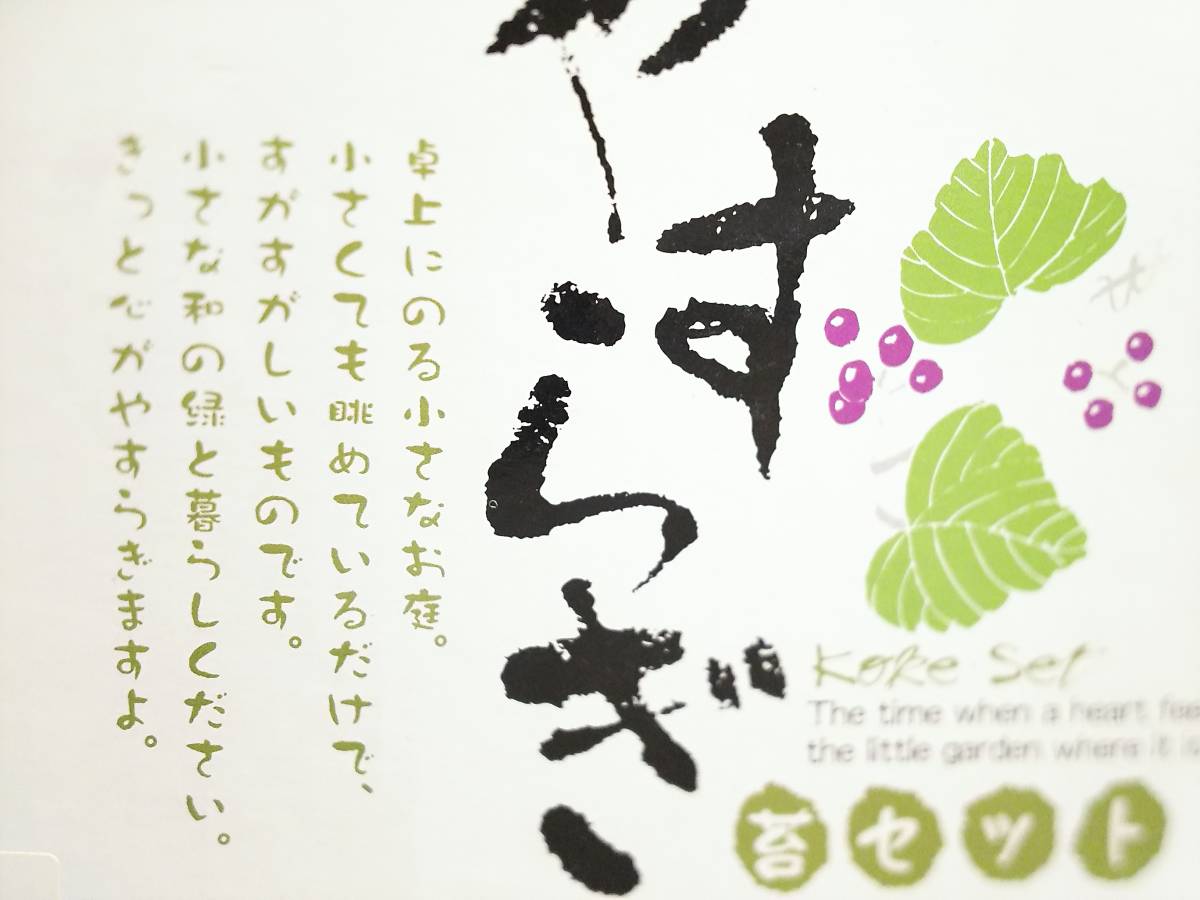 やすらぎ
卓上にのる小さなお庭。
小さくても眺めているだけで、
すがすがしいものです。
小さな和の緑と暮らしください。
きっと心がやすらぎますよ。
Koke Set
The time when a heart fee
the little garden where it is
苔セット